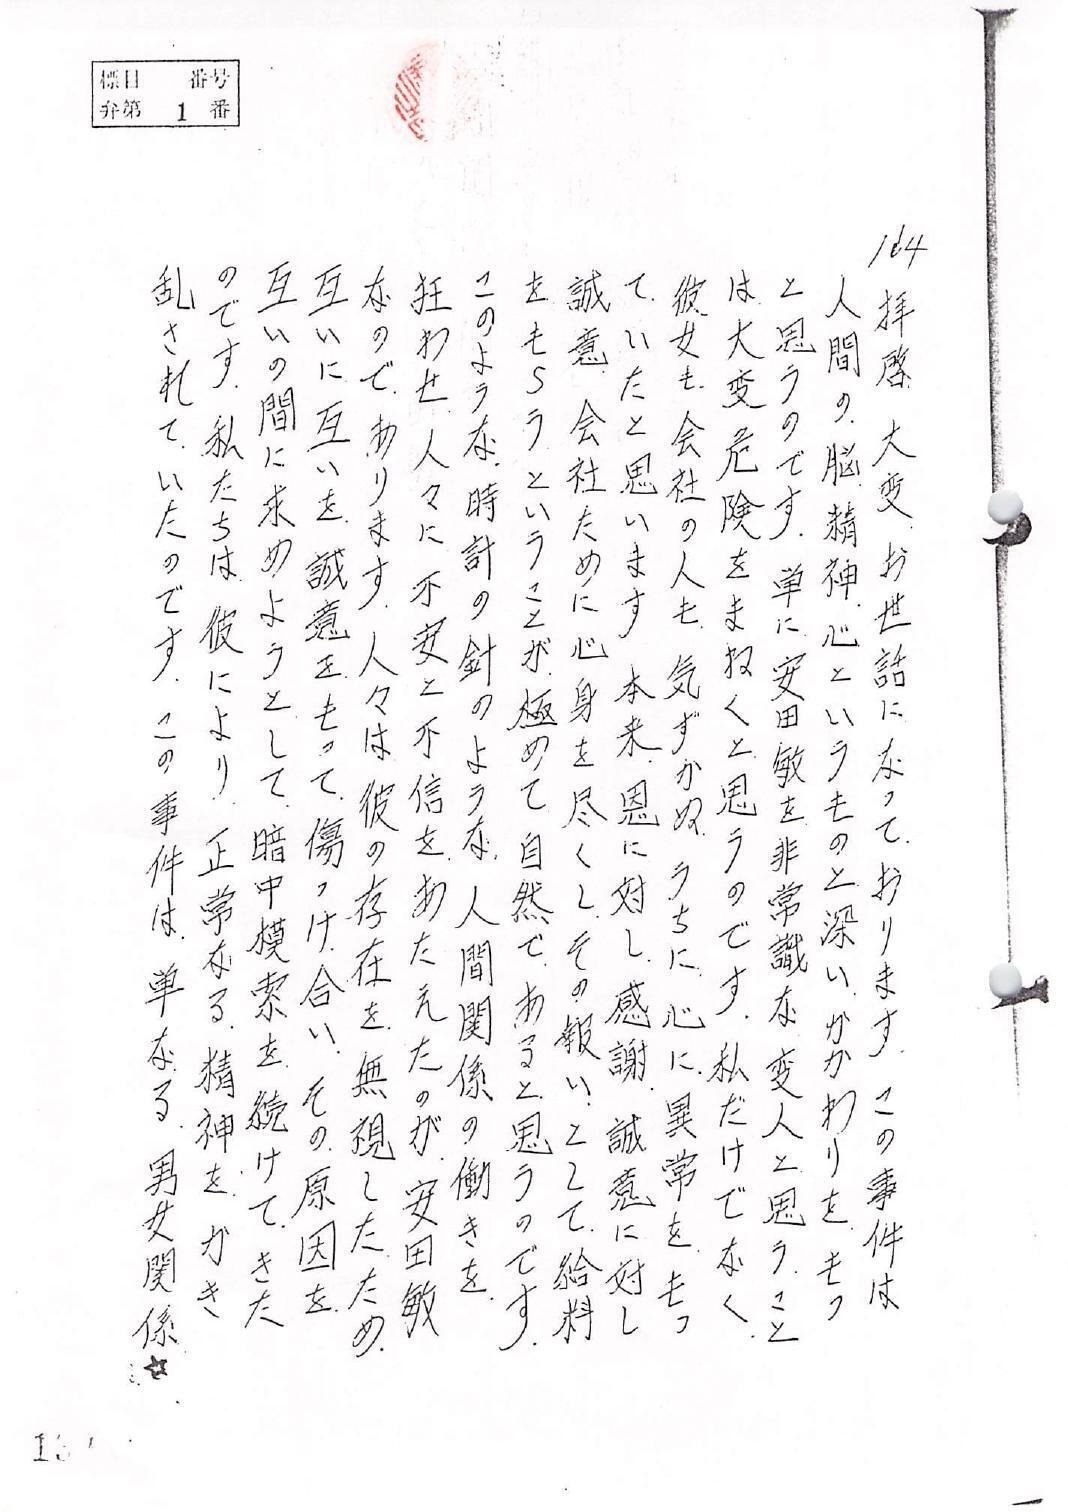 標目 番号
弁第 1 番
拝啓 大変、お世話になって、おります。この事件は
人間の、脳、精神、心というものと深い、かかわりを、もつ
と思うのです。単に、安田敏を非常識な、変人と思う、こと
は大変危険をまねくと思うのです。私だけでなく、
彼女も、会社の人も、気ずかぬ、うちに、心に、異常を、もっ
て、いたと思います。本来、恩に対し、感謝、誠意に対し
誠意、会社ために心身を尽くし、その報い、として、給料
をもらうということが、極めて自然で、あると思うのです。
このような、時計の針のような、人間関係の働きを、
狂わせ、人々に、不安と不信を、あたえたのが、安田敏
なので、あります。人々は彼の存在を、無視したため、
互いに互いを、誠意をもって、傷つけ、合い、その原因を、
互いの間に求めようとして、暗中模索を、続けて、きた
のです。私たちは、彼により、正常なる、精神を、かき
乱されて、いたのです。この事件は、単なる、男女関係☆